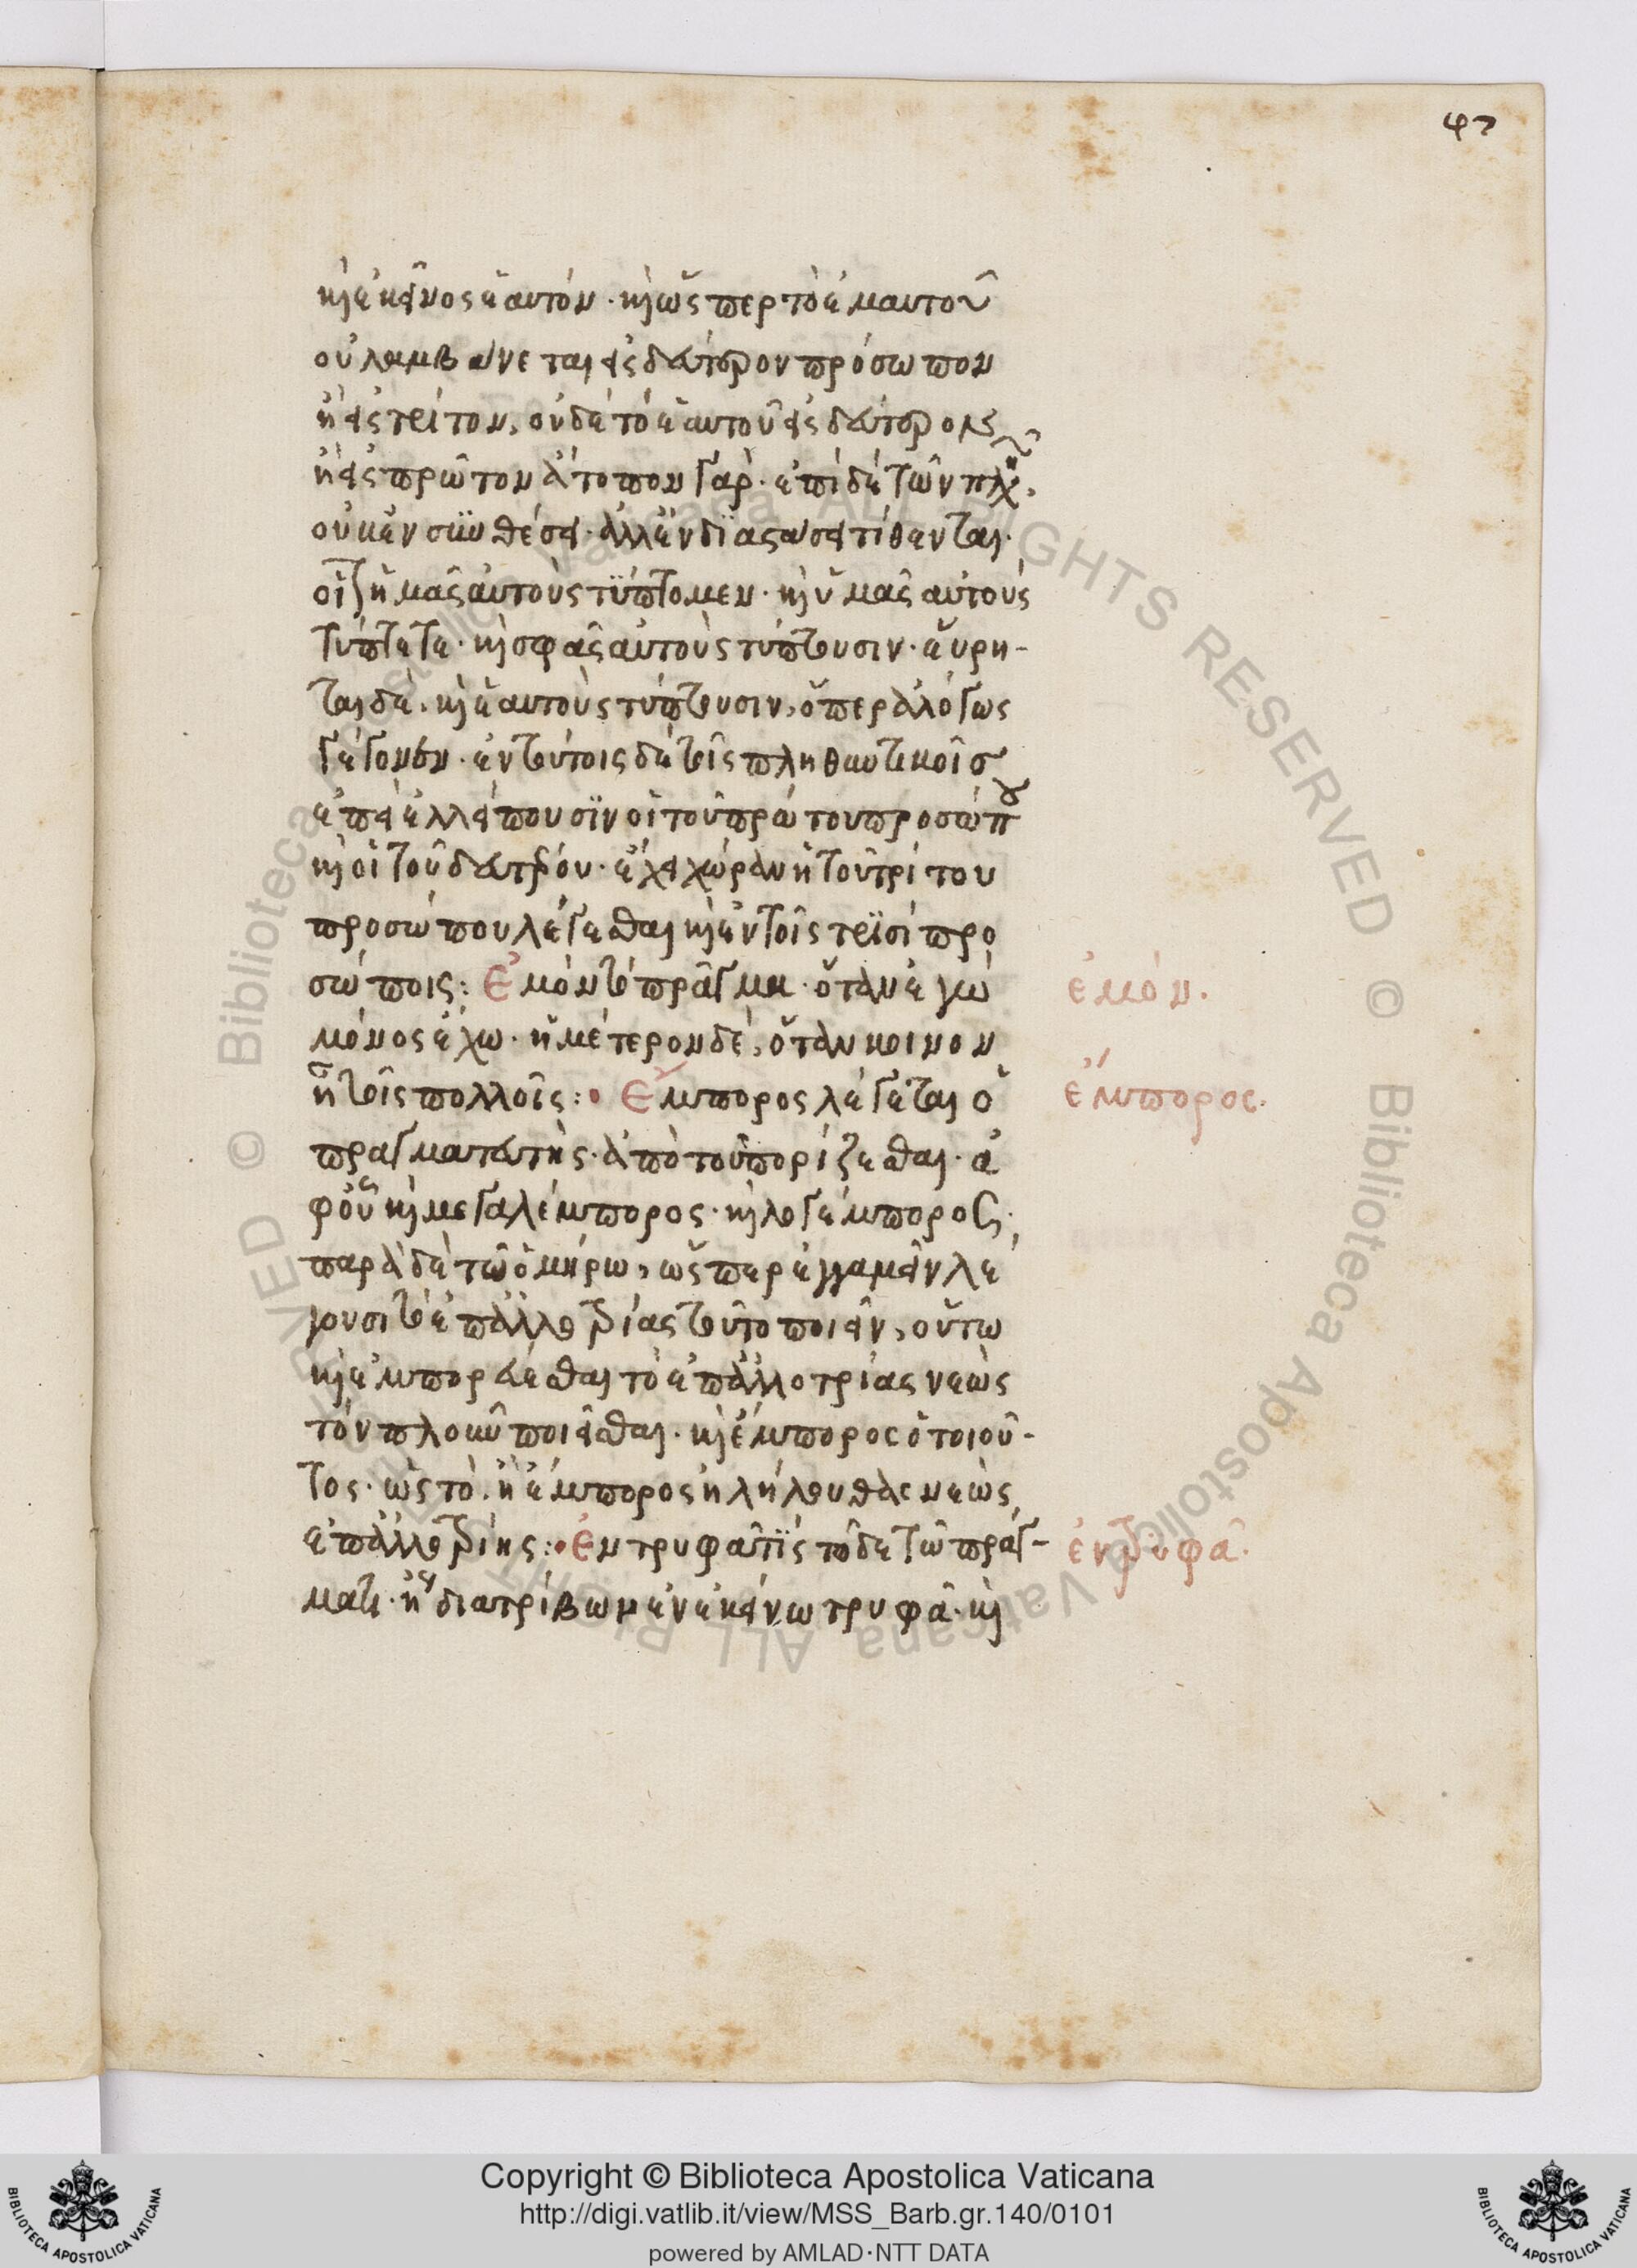 97
καὶ ἐκεῖνος ἑαυτόν · καὶ ὥσπερ τὸ ἐμαυτοῦ
οὐ λαμβάνεται εἰς δεύτερον πρόσωπον
ἢ εἰς τρίτον, οὐδὲ τὸ ἑαυτοῦ εἰς δεύτερον
ἢ εἰς πρῶτον ἄτοπον γάρ · ἐπὶ δὲ τῶν πλη
οὐκ ἐν συνθέσει · ἀλλ' ἐν διαστάσει τίθενται ·
οἷον ἡμᾶς αὐτοὺς τύπτομεν · καὶ ὑμᾶς αὐτοὺς
τύπτετε · καὶ σφᾶς αὐτοὺς τύπτουσιν · εὕρη-
ται δὲ, καὶ ἑαυτοὺς τύπτουσιν, ὅπερ ἀλόγως
γέγονεν · ἐν τούτοις δὲ τοῖς πληθυντικοῖς
ἐπεὶ ἐλλείπουσιν οἱ τοῦ πρώτου προσώπου
καὶ οἱ τοῦ δευτέρου · ἔχει χώραν ἡ τοῦ τρίτου
προσώπου λέγεσθαι καὶ ἐν τοῖς τρισὶ προ
σώποις : Ἐμὸν τὸ πρᾶγμα · ὅταν ἐγὼ
μόνος ἔχω · ἡμέτερον δὲ, ὅταν κοινὸν
ᾖ τοῖς πολλοῖς : · Ἔμπορος λέγεται ὁ
πραγματευτὴς · ἀπὸ τοῦ πορίζεσθαι · ἀ
φ' οὗ καὶ μεγαλέμπορος · καὶ λογέμπορος ·
παρὰ δὲ τῶ ὁμήρω, ὥσπερ ἐγγαμεῖν λέ
γουσι τὸ ἐπ' ἀλλοτρίας τοῦτο ποιεῖν, οὕτω
καὶ ἐμπορεύεσθαι τὸ ἐπ' ἀλλοτρίας νεὼς
τὸν πλοῦν ποιεῖσθαι · καὶ ἔμπορος ὁ τοιοῦ-
τος · ὡς τὸ, ἢ ἔμπορος εἰλήλουθας νεὼς
ἐπ' ἀλλοτρίης : · Ἐντρυφᾶ τίς τῶδε τῶ πράγ-
ματι · ἢ διατρίβων ἐν ἐκείνω τρυφᾶ · καὶ
ἐμόν ·
ἔμπορος ·
ἐντρυφᾶ ·
Copyright © Biblioteca Apostolica Vaticana
http://digi.vatlib.it/view/MSS_Barb.gr.140/0101
powered by AMLAD·NTT DATA
BIBLIOTECA APOSTOLICA VATICANA
BIBLIOTECA APOSTOLICA VATICANA